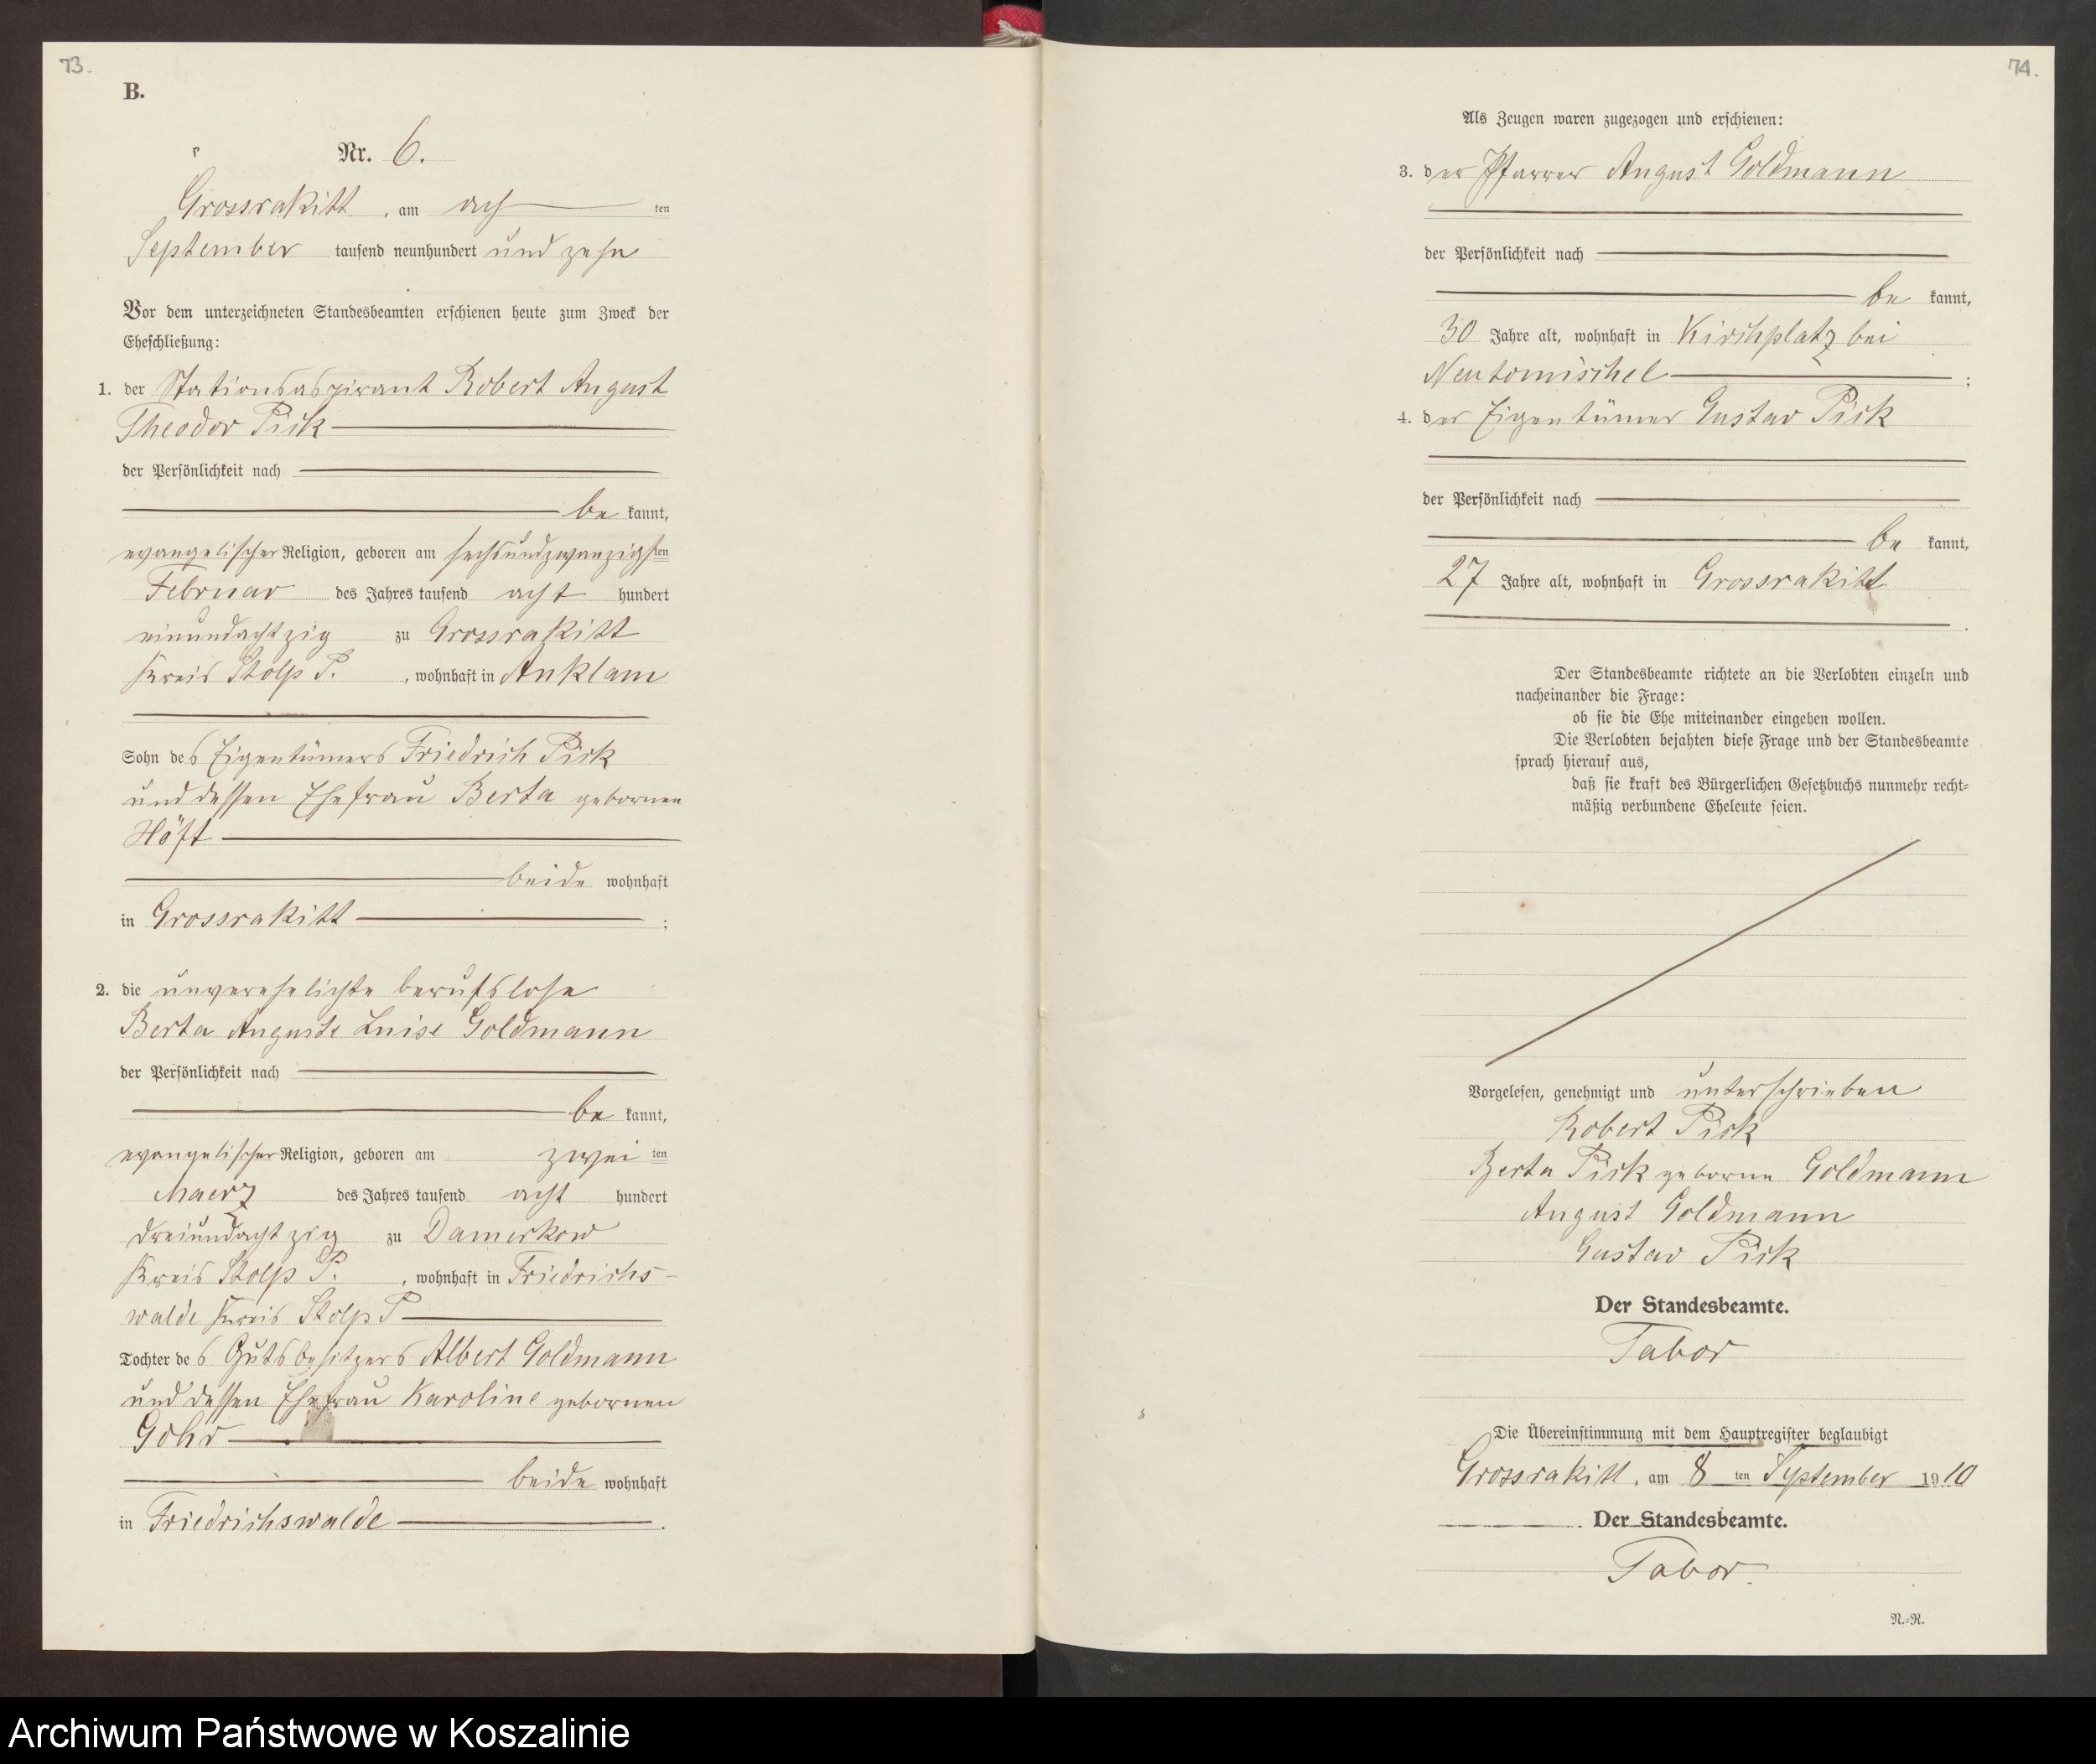 73.
B.
Nr. 6.
Grossrakitt, am ach ten
September tausend neunhundert und zehn
Vor dem unterzeichneten Standesbeamten erschienen heute zum Zweck der
Eheschließung:
1. der Stationsaspirant Robert August
Theodor Pick
der Persönlichkeit nach
be kannt,
evangelischer Religion, geboren am sechsundzwanzigsten
Februar des Jahres tausend acht hundert
einundachtzig zu Grossrakitt
Kreis Stolp P., wohnhaft in Anklam
Sohn des Eigentümers Friedrich Pick
und dessen Ehefrau Berta geborenen
Höft
beide wohnhaft
in Grossrakitt ;
2. die unverehelichte berufslose
Berta Auguste Luise Goldmann
der Persönlichkeit nach
be kannt,
evangelischer Religion, geboren am zwei ten
Maerz des Jahres tausend acht hundert
dreiundachtzig zu Damerkow
Kreis Stolp P., wohnhaft in Friedrichs-
walde Kreis Stolp P
Tochter des Gutsbesitzers Albert Goldmann
und dessen Ehefrau Karoline geborenen
Gohr
beide wohnhaft
in Friedrichswalde .
74.
Als Zeugen waren zugezogen und erschienen:
3. der Pfarrer August Goldmann
der Persönlichkeit nach
be kannt,
30 Jahre alt, wohnhaft in Kirchplatz bei
Neutomischel ;
4. der Eigentümer Gustav Pick
der Persönlichkeit nach
be kannt,
27 Jahre alt, wohnhaft in Grossrakitt
.
Der Standesbeamte richtete an die Verlobten einzeln und
nacheinander die Frage:
ob sie die Ehe miteinander eingehen wollen.
Die Verlobten bejahten diese Frage und der Standesbeamte
sprach hierauf aus,
daß sie kraft des Bürgerlichen Gesetzbuchs nunmehr recht-
mäßig verbundene Eheleute seien.
Vorgelesen, genehmigt und unterschrieben
Robert Pick
Berta Pick geborne Goldmann
August Goldmann
Gustav Pick
Der Standesbeamte.
Tabor
Die Übereinstimmung mit dem Hauptregister beglaubigt
Grossrakitt, am 8 ten September 1910
Der Standesbeamte.
Tabor.
N.-R.
Archiwum Państwowe w Koszalinie